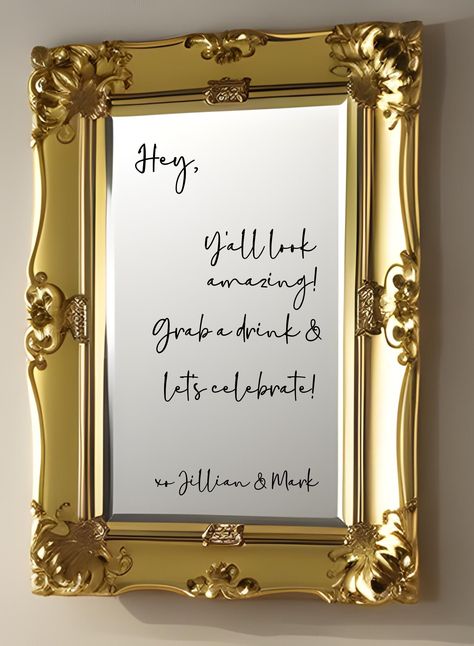 Hey,
Y'all look
amazing!
Grab a drink &
let's celebrate!
xo Jillian & Mark